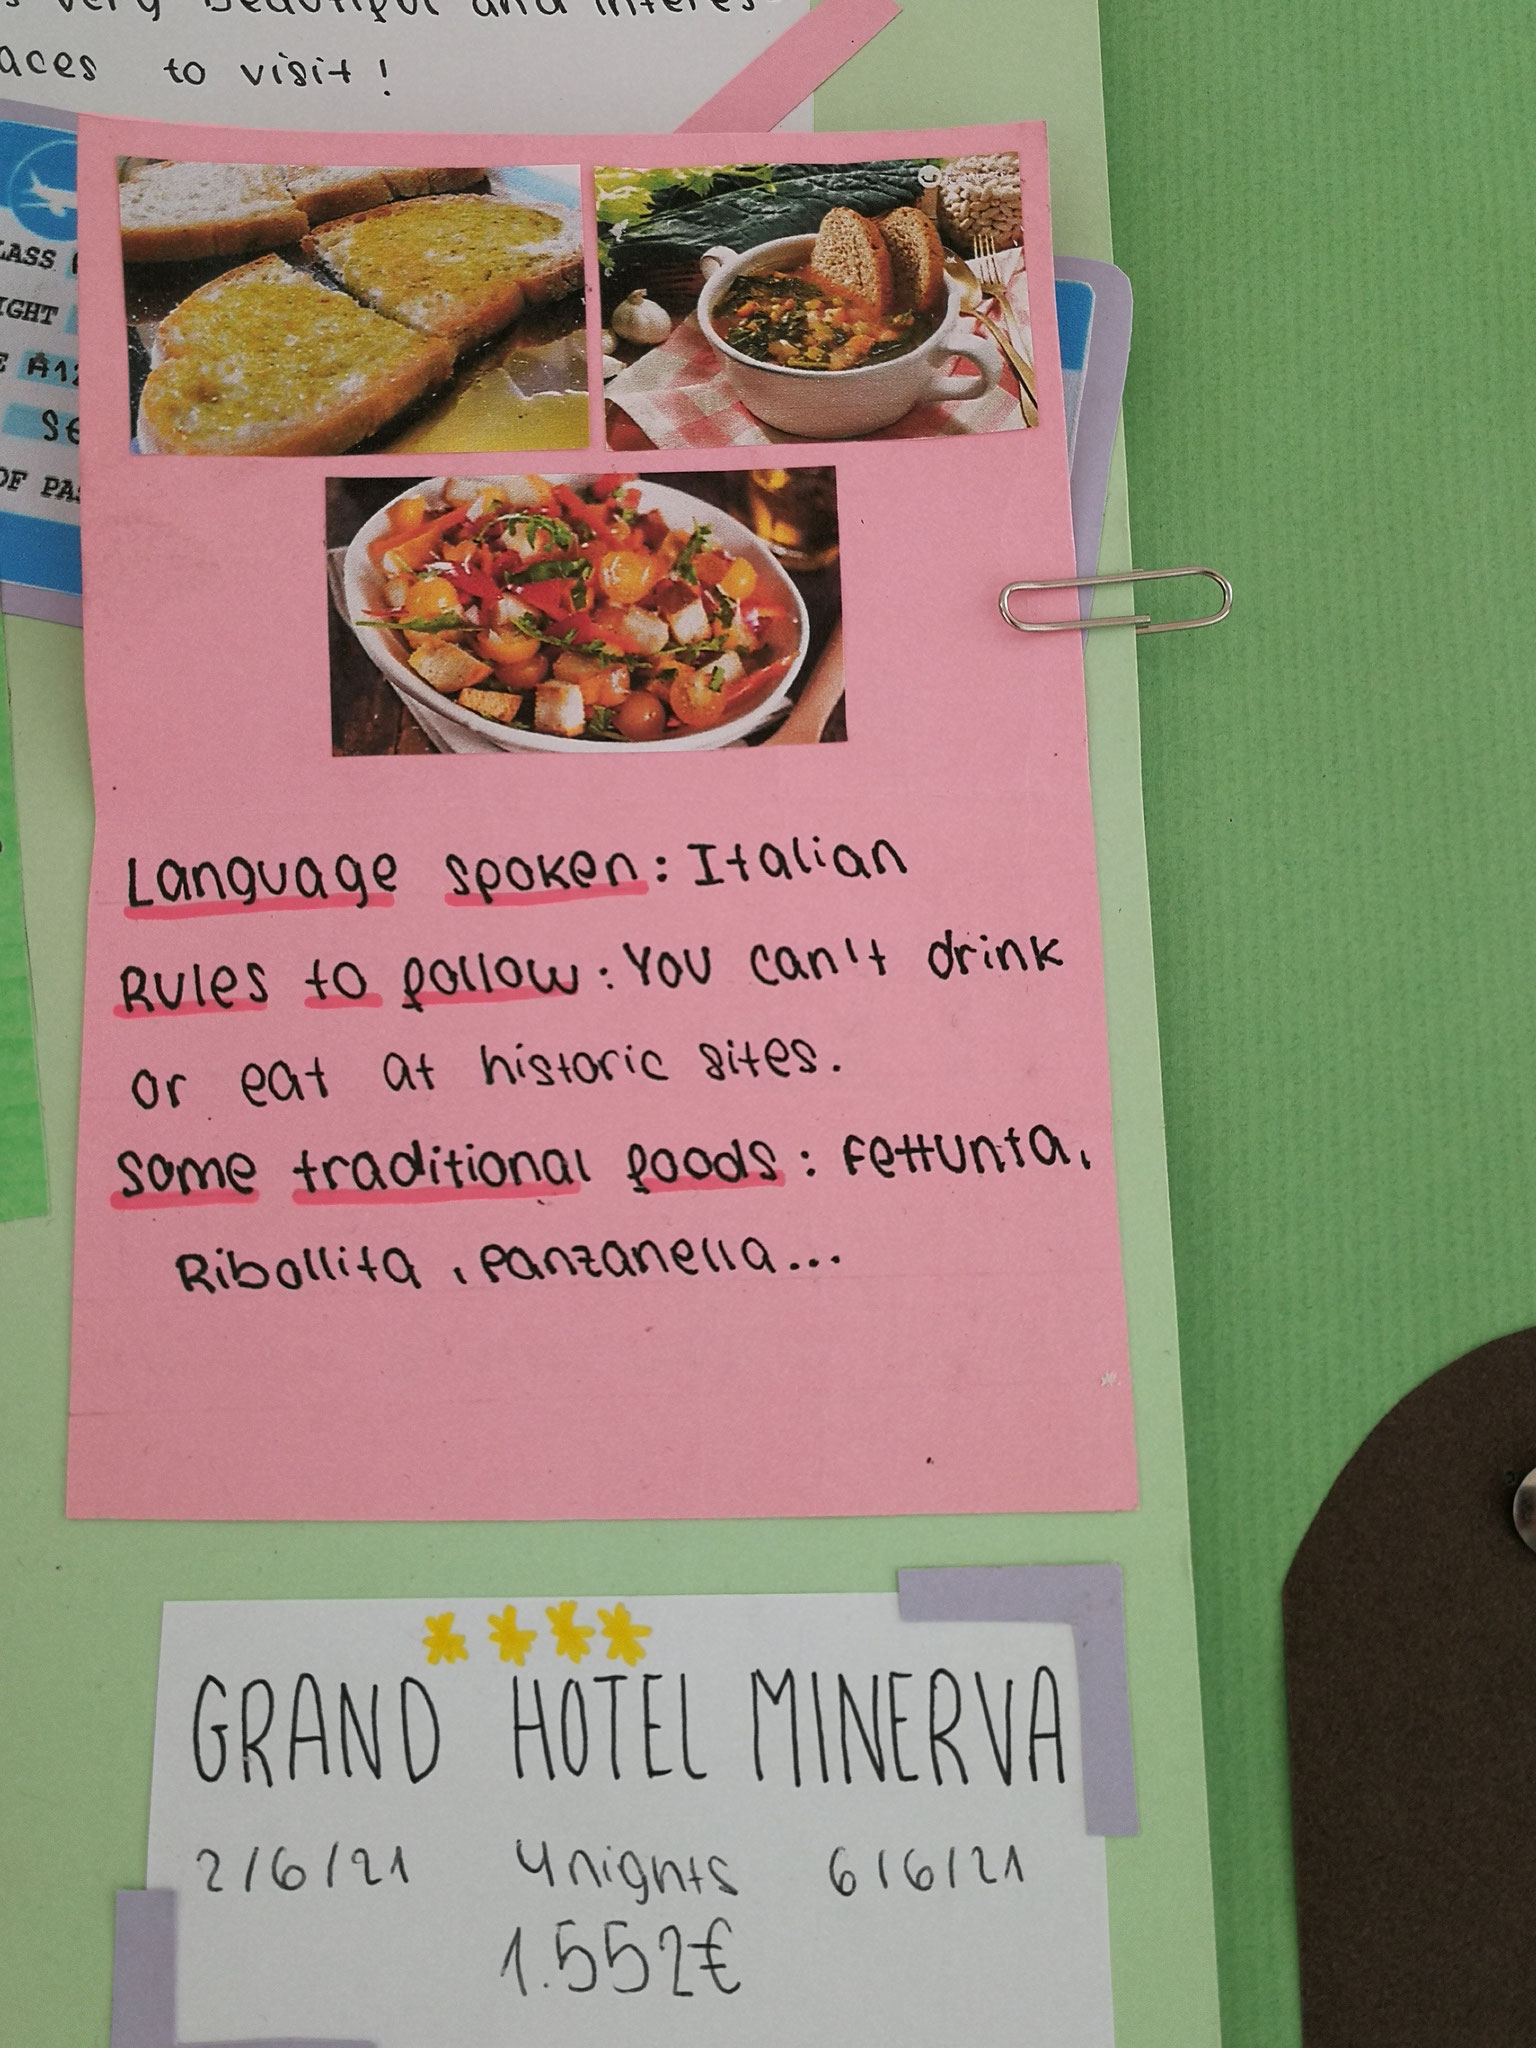 very beautiful and interes
aces to visit!
LASS
IGHT
E A12
SE
OF PA
Language spoken: Italian
Rules to follow: You can't drink
or eat at historic sites.
Some traditional foods: Fettunta,
Ribollita, Panzanella...
GRAND HOTEL MINERVA
2/6/21 4 nights 6/6/21
1.552€